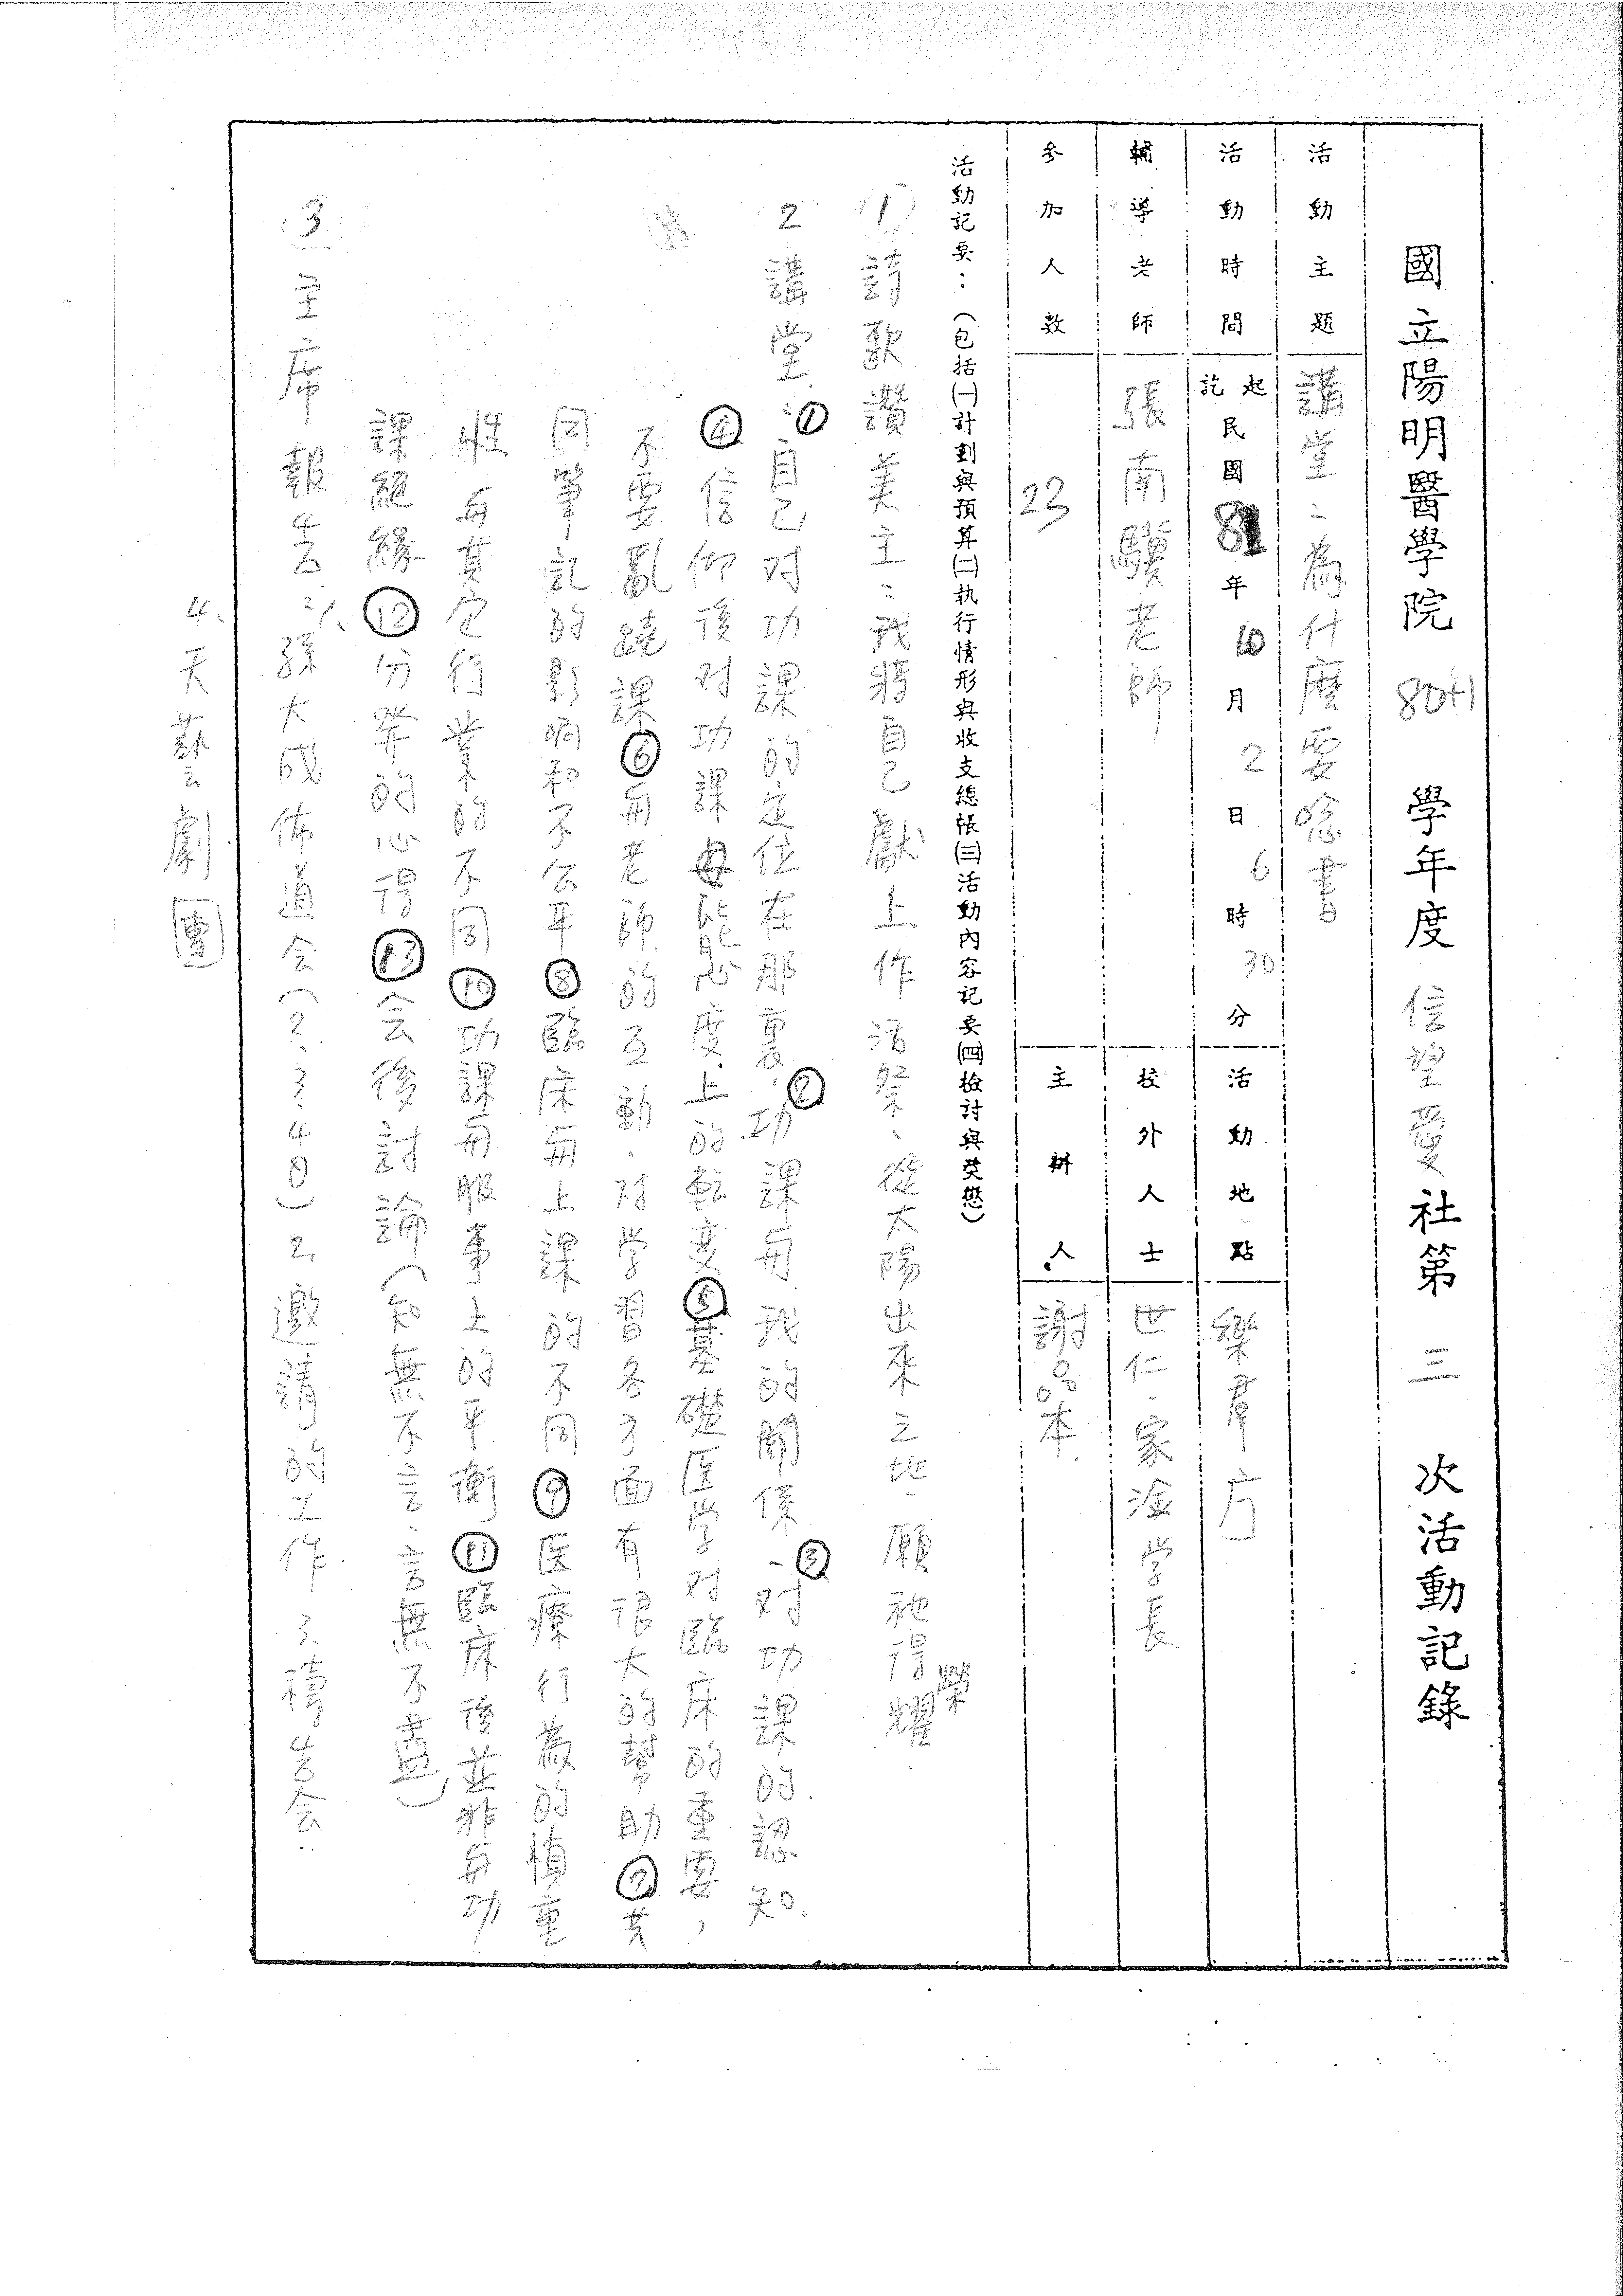 國立陽明醫學院 80+1 學年度 信望愛社第 三 次活動記錄
活動主題 講堂：為什麼要唸書
活動時間 起訖民國81年10月2日6時30分 活動地點 樂羣方
輔導老師 張南驥老師 校外人士 世仁．家淦学長
參加人數 23 主辦人 謝品本
活動記要：（包括㈠計劃與預算㈡執行情形與收支總帳㈢活動內容記要㈣檢討與獎懲）
1 詩歌讚美主：我將自己獻上作活祭、從太陽出來之地、願祂得榮耀．
2 講堂：①自己对功課的定位在那裏．②功課與我的關係、③对功課的認知．
④信仰後对功課態度上的転变⑤基礎医学对臨床的重要，
不要亂蹺課⑥與老師的互動．对学習各方面有很大的幫助⑦共
同筆記的影响和不公平⑧臨床與上課的不同⑨医療行為的慎重
性與其它行業的不同⑩功課與服事上的平衡⑪臨床後並非與功
課絕緣⑫分発的心得⑬会後討論（知無不言．言無不盡）
3 主席報告：1、孫大成佈道会（2.3.4日）2、邀請的工作 3、禱告会..
4、天藝劇團